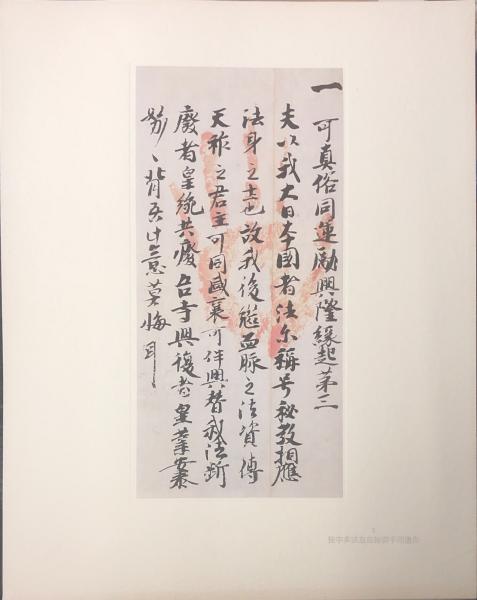 一可真俗同運勵興隆縁起第三
夫以我大日本國者法尓稱号秘教相應
法身之土也故我後継血脉之法資傳
天祚之君主可同盛衰可伴興替我法断
廢者皇統共廢吾寺興復者皇業安泰
努々背吾此意莫悔耳